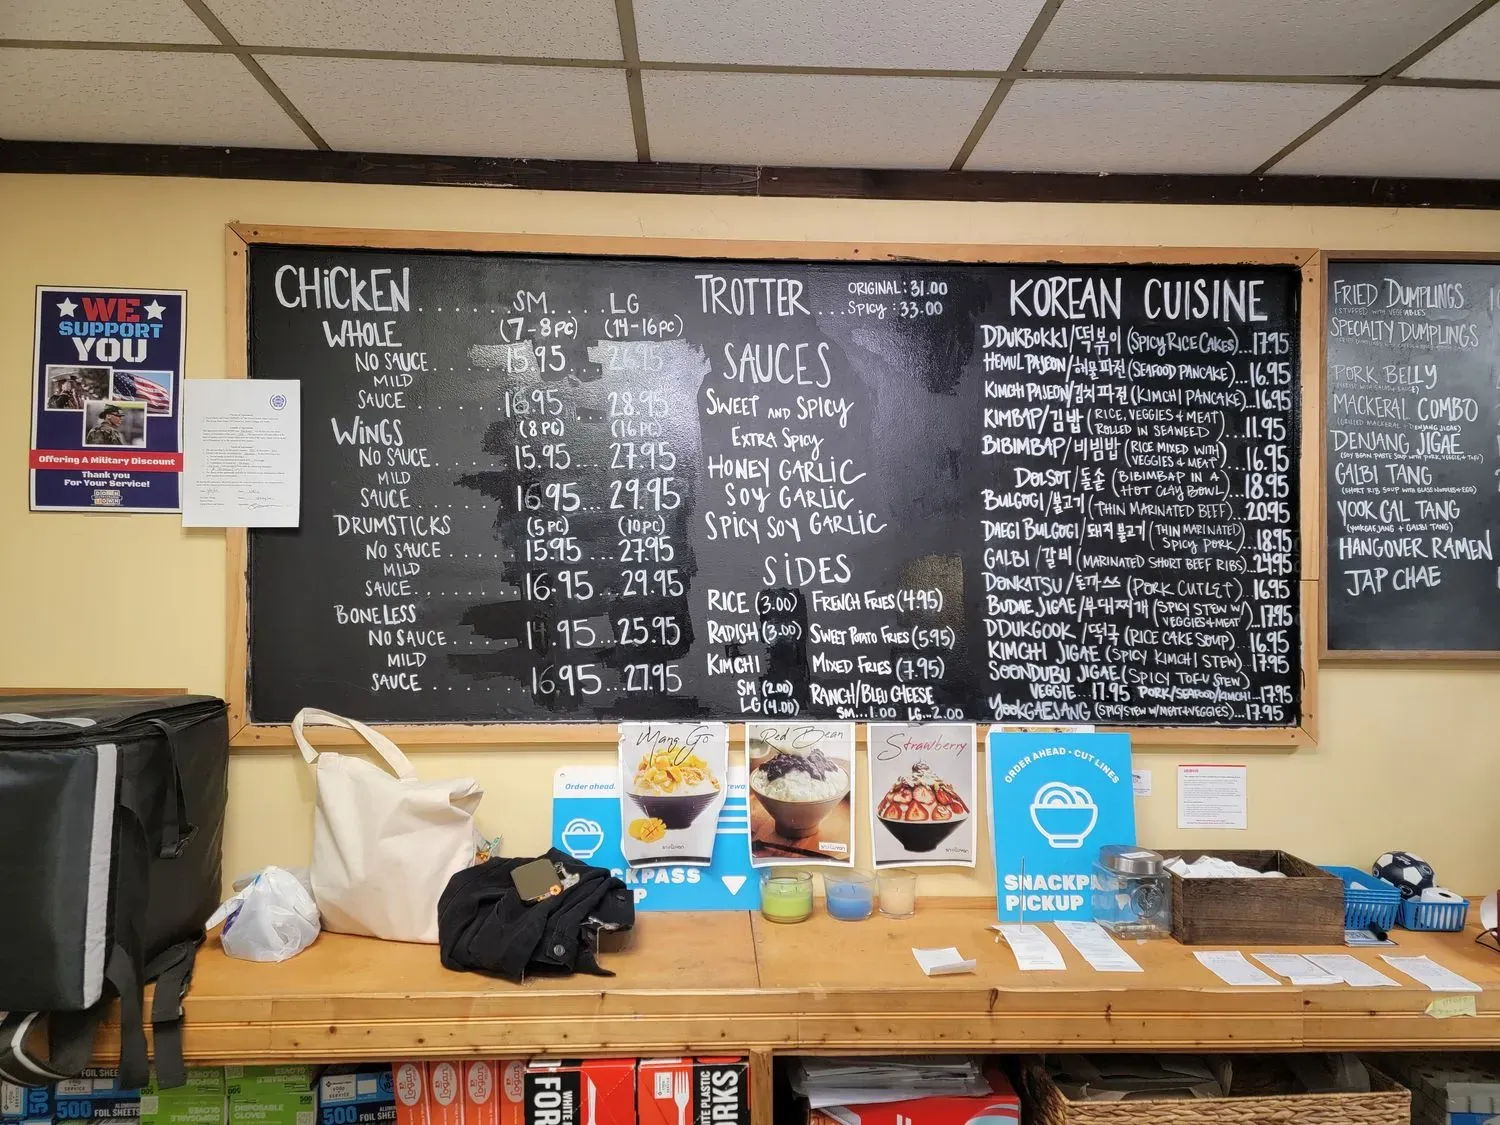 WE
SUPPORT
YOU
Offering A Military Discount
Thank you
For Your Service!
CHICKEN.......SM.....LG
WHOLE (7-8PC) (14-16PC)
NO SAUCE 15.95 26.95
MILD
SAUCE 16.95 28.95
WINGS (8 PC) (16 PC)
NO SAUCE....... 15.95...27.95
MILD
SAUCE....... 16.95...29.95
DRUMSTICKS (5 PC) (10 PC)
NO SAUCE....... 15.95...27.95
MILD
SAUCE....... 16.95...29.95
BONELESS
NO SAUCE...... 14.95...25.95
MILD
SAUCE....... 16.95...27.95
TROTTER... ORIGINAL: 31.00
SPICY: 33.00
SAUCES
SWEET AND SPICY
EXTRA SPICY
HONEY GARLIC
SOY GARLIC
SPICY SOY GARLIC
SIDES
RICE (3.00) FRENCH FRIES (4.95)
RADISH (3.00) SWEET POTATO FRIES (5.95)
KIMCHI MIXED FRIES (7.95)
SM (2.00) RANCH/BLEU CHEESE
LG (4.00) SM...1.00 LG...2.00
KOREAN CUISINE
DDUKBOKKI/떡볶이 (SPICY RICE CAKES)...17.95
HEMUL PAJEON/해물파전 (SEAFOOD PANCAKE)...16.95
KIMCHI PAJEON/김치파전 (KIMCHI PANCAKE)...16.95
KIMBAP/김밥 (RICE, VEGGIES + MEAT
ROLLED IN SEAWEED)...11.95
BIBIMBAP/비빔밥 (RICE MIXED WITH
VEGGIES & MEAT)...16.95
DOLSOT/돌솥 (BIBIMBAP IN A
HOT CLAY BOWL)...18.95
BULGOGI/불고기 (THIN MARINATED BEEF)...20.95
DAEGI BULGOGI/돼지불고기 (THIN MARINATED
SPICY PORK)...18.95
GALBI/갈비 (MARINATED SHORT BEEF RIBS)...24.95
DONKATSU/돈가쓰 (PORK CUTLET)...16.95
BUDAE JIGAE/부대찌개 (SPICY STEW W/
VEGGIES+MEAT)...17.95
DDUKGOOK/떡국 (RICE CAKE SOUP)...16.95
KIMCHI JIGAE (SPICY KIMCHI STEW)...17.95
SOONDUBU JIGAE (SPICY TOFU STEW)
VEGGIE...17.95 PORK/SEAFOOD/KIMCHI...17.95
YOOKGAEJANG (SPICY STEW W/MEAT+VEGGIES)...17.95
FRIED DUMPLINGS
(STUFFED WITH VEGETABLES)
SPECIALTY DUMPLINGS
PORK BELLY
MACKERAL COMBO
(GRILLED MACKERAL + DENJANG JIGAE)
DENJANG JIGAE
(SOY BEAN PASTE SOUP WITH PORK, VEGGIE + TOFU)
GALBI TANG
(SHORT RIB SOUP WITH GLASS NOODLES + EGG)
YOOK GAL TANG
(YOOKGAEJANG + GALBI TANG)
HANGOVER RAMEN
JAP CHAE
Mang Go
Red Bean
Strawberry
Order ahead.
CKPASS
P
ORDER AHEAD • CUT LINES
SNACKPA
PICKUP
500
FOIL SHEETS
DISPOSABLE
GLOVES
DISPOSABLE
GLOVES
500 FOIL SHEETS
Logan
Logan
Logan
WHITE
FOR
WHITE PLASTIC
RKS